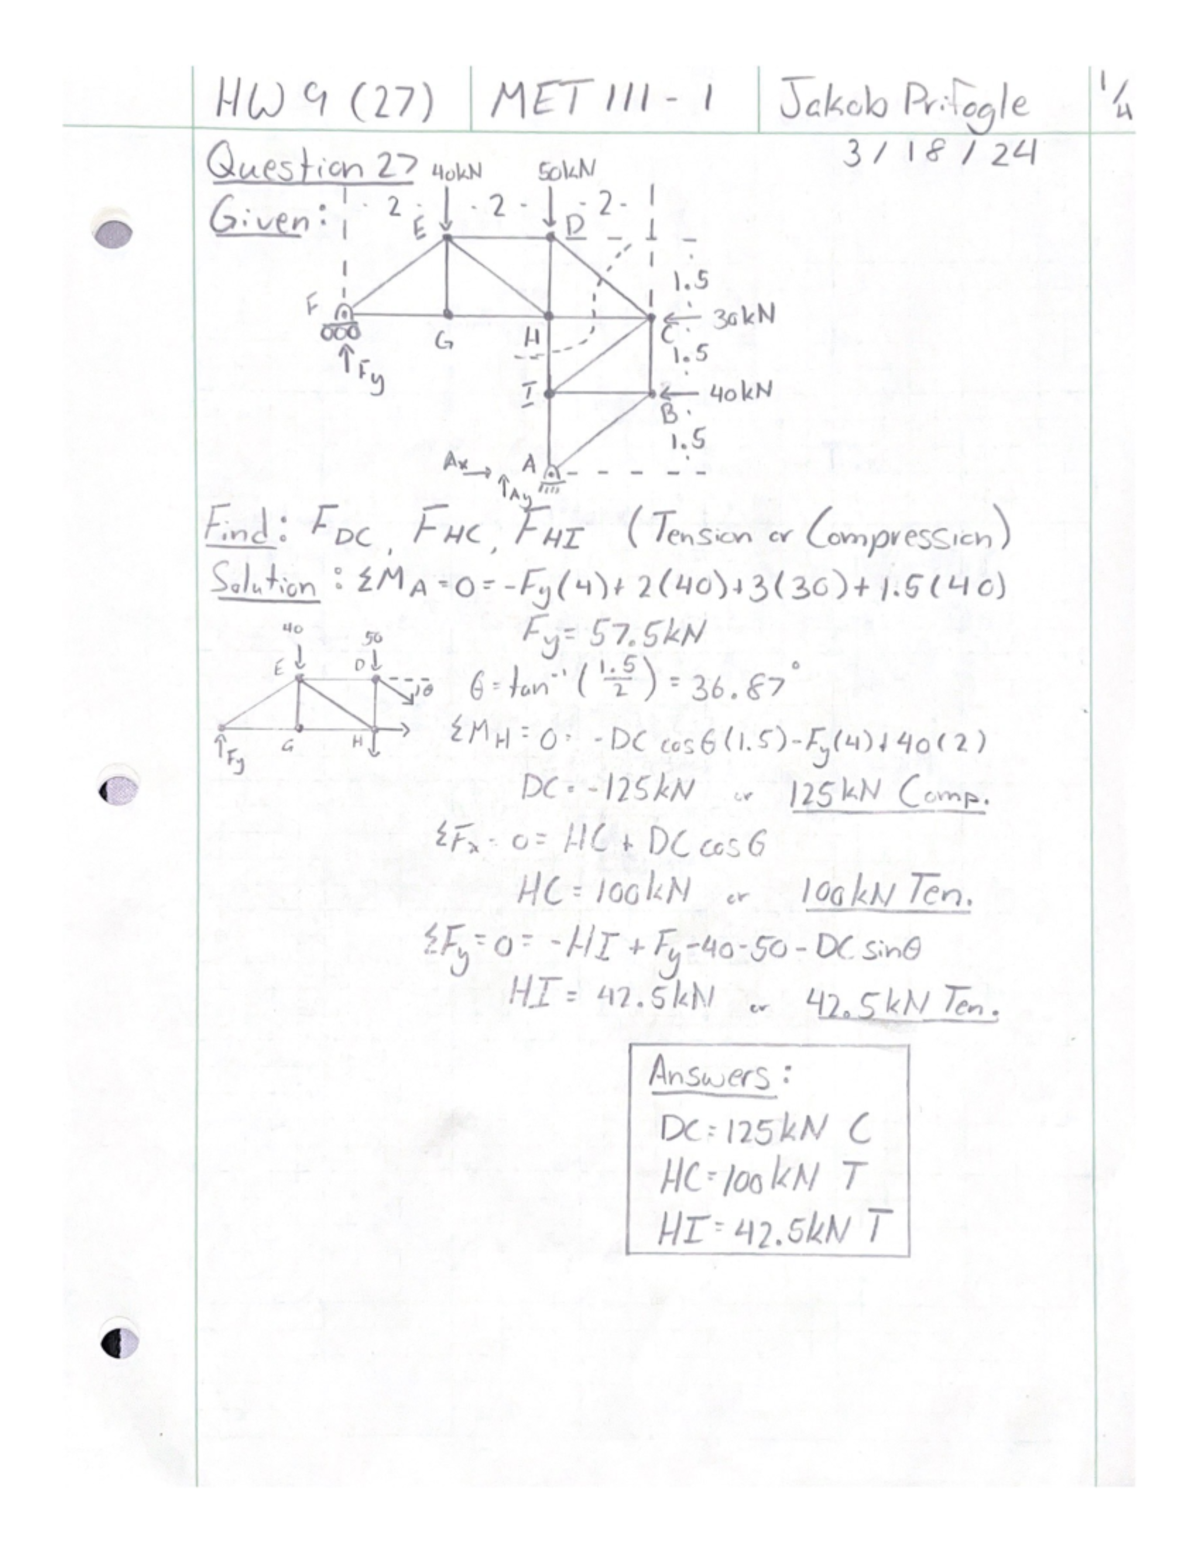 HW 9 (27) MET 111 - 1 Jakob Prifogle 1/4
3/18/24
Question 27
Given:
40kN 50kN
2 2 2
E D
1.5
F G H C 30kN
Fy
1.5
I B 40kN
1.5
Ax A
Ay
Find: FDC, FHC, FHI (Tension or Compression)
Solution: ΣMA = 0 = -Fy(4) + 2(40) + 3(30) + 1.5(40)
Fy = 57.5kN
40 50
E D θ
θ = tan⁻¹ (1.5/2) = 36.87°
G H
Fy
ΣMH = 0 = -DC cosθ(1.5) - Fy(4) + 40(2)
DC = -125kN or 125kN Comp.
ΣFx = 0 = HC + DC cosθ
HC = 100kN or 100kN Ten.
ΣFy = 0 = -HI + Fy - 40 - 50 - DC sinθ
HI = 42.5kN or 42.5kN Ten.
Answers:
DC = 125kN C
HC = 100kN T
HI = 42.5kN T